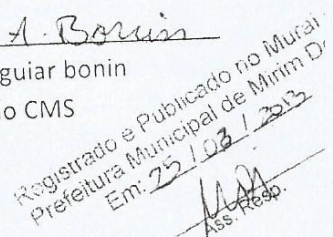 A. Bonin
guiar bonin
o CMS
Registrado e Publicado no Mural
Prefeitura Municipal de Mirim D
Em: 25 / 03 / 2013
Ass. Resp.